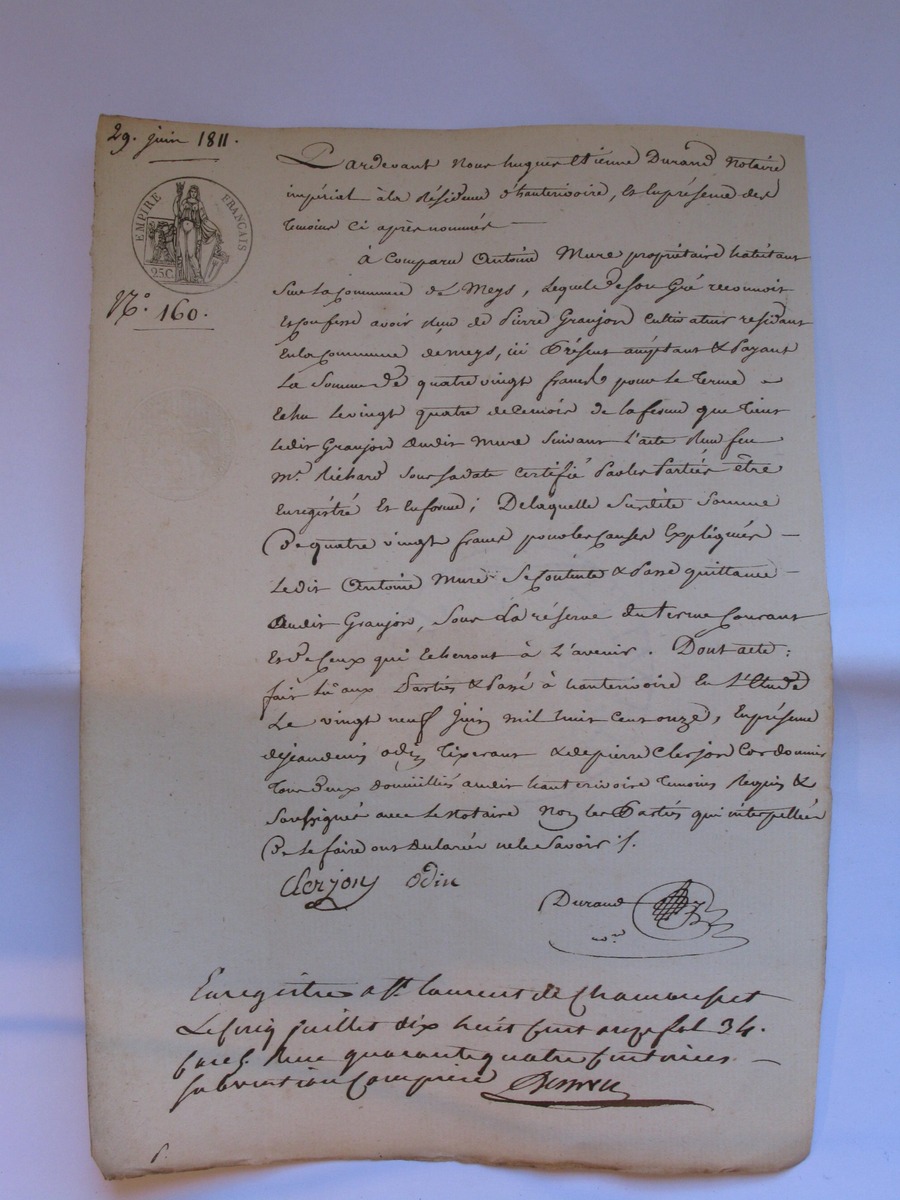 29. juin 1811.
EMPIRE FRANÇAIS
25C
N.° 160.
Pardevant Nous hugues Etienne Durand Notaire
impérial à la Résidence d'hauterivoire, Et En présence des
temoins ci après nommés
à Comparu Antoine Mure propriétaire habitant
Sur la Commune de Meys, lequel de son Gré reconnoit
Et Confesse avoir Reçu de Pierre Granjon Cultivateur residant
En la Commune de meys, ici Présent acceptant & Payant
La Somme de quatre vingt francs pour le terme
Echu le vingt quatre de ce mois de la ferme que tient
ledit Granjon dudit Mure Suivant l'acte Reçu feu
Mr. Richard Sous sa date Certifié Par les Parties être
Enregistré Et En forme; De laquelle Susdite Somme
De quatre vingt francs pour les Causes Expliquées
Ledit Antoine Mure Se Contente & Passe quittance
Audit Granjon, Sous la réserve du terme Courant
Et de Ceux qui Echerront à L'avenir. Dont acte:
fait Lu aux Parties & Passé à hauterivoire En L'Etude
Le vingt neuf Juin mil huit Cent onze, En présence
de jean denis odin tixerant & de pierre Clerjon Cordonnier
tous deux domiciliés audit hauterivoire temoins Requis &
Soussignés avec le Notaire Non les Parties qui interpellées
De le faire ont declaré ne le Savoir ./.
Clerjon odin
Durand
Nre
Enregistré a St. laurent de Chamousset
Le Cinq juillet dix huit Cent onze fol 34.
Case 5. Reçu quarante quatre Centimes
subvention Comprise